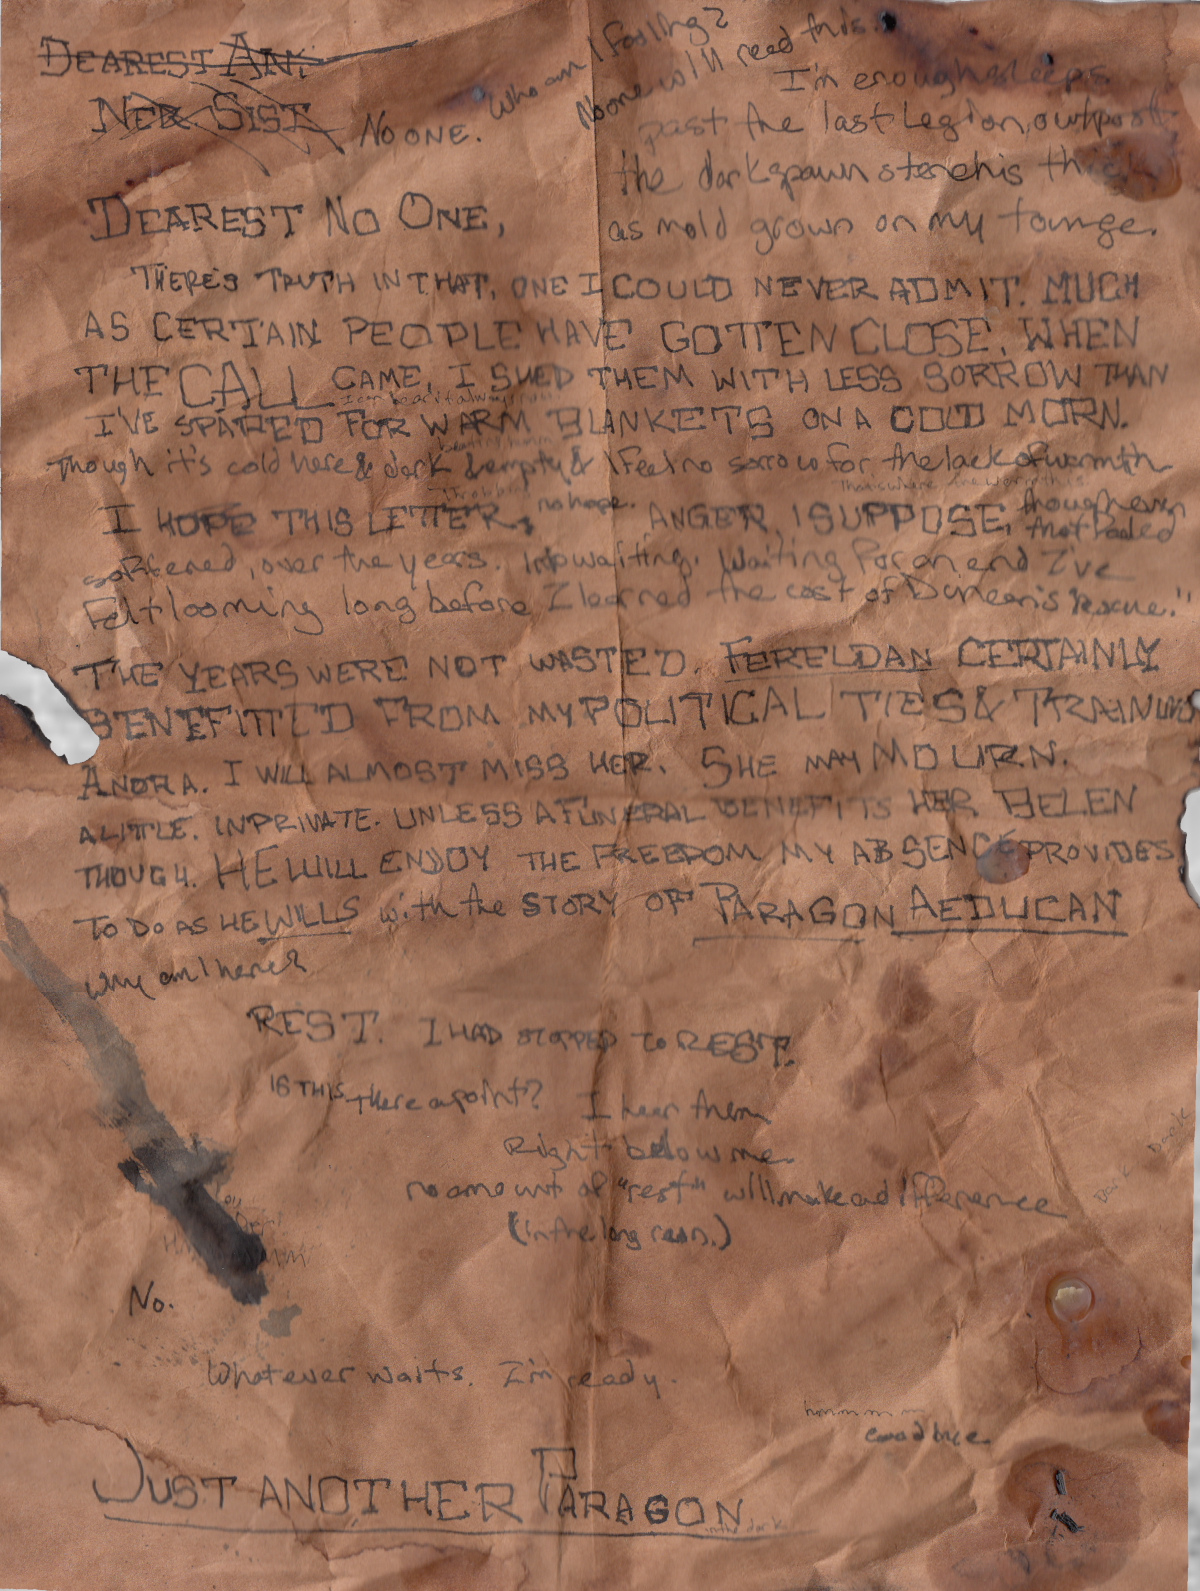 DEAREST AN
NER SIST
NO ONE.
Who am I fooling?
No one will read this.
I'm enough sleeps
past the last Legion outpost
the darkspawn stench is
as mold grown on my tounge.
DEAREST NO ONE,
THERE'S TRUTH IN THAT, ONE I COULD NEVER ADMIT. MUCH
AS CERTAIN PEOPLE HAVE GOTTEN CLOSE, WHEN
THE CALL CAME, I SHED THEM WITH LESS SORROW THAN
I can hear it always now
I'VE SPARED FOR WARM BLANKETS ON A COLD MORN.
Though it's cold here & dark & empty & I feel no sorrow for the lack of warmth
That's where the warmth is
I HOPE THIS LETTER, no hope. ANGER, I SUPPOSE, though even that
softened, over the years. Into waiting. Waiting for an end I've
Felt looming long before I learned the cost of Duncan's "rescue."
THE YEARS WERE NOT WASTED. FERELDAN CERTAINLY
BENEFITTED FROM MY POLITICAL TIES & TRAINING
ANORA. I WILL ALMOST MISS HER. SHE MAY MOURN.
A LITTLE. IN PRIVATE. UNLESS A FUNERAL BENEFITS HER. BELEN
THOUGH. HE WILL ENJOY THE FREEDOM MY ABSENCE PROVIDES
TO DO AS HE WILLS with the STORY OF PARAGON AEDUCAN
Why am I here?
REST. I HAD STOPPED TO REST.
IS THIS there a point? I hear them
Right below me.
no amount of "rest" will make a difference
(in the long run.)
Dark Dark
No.
Whatever waits. I'm ready.
hmmmmm
Goodbye.
JUST ANOTHER PARAGON
in the dark